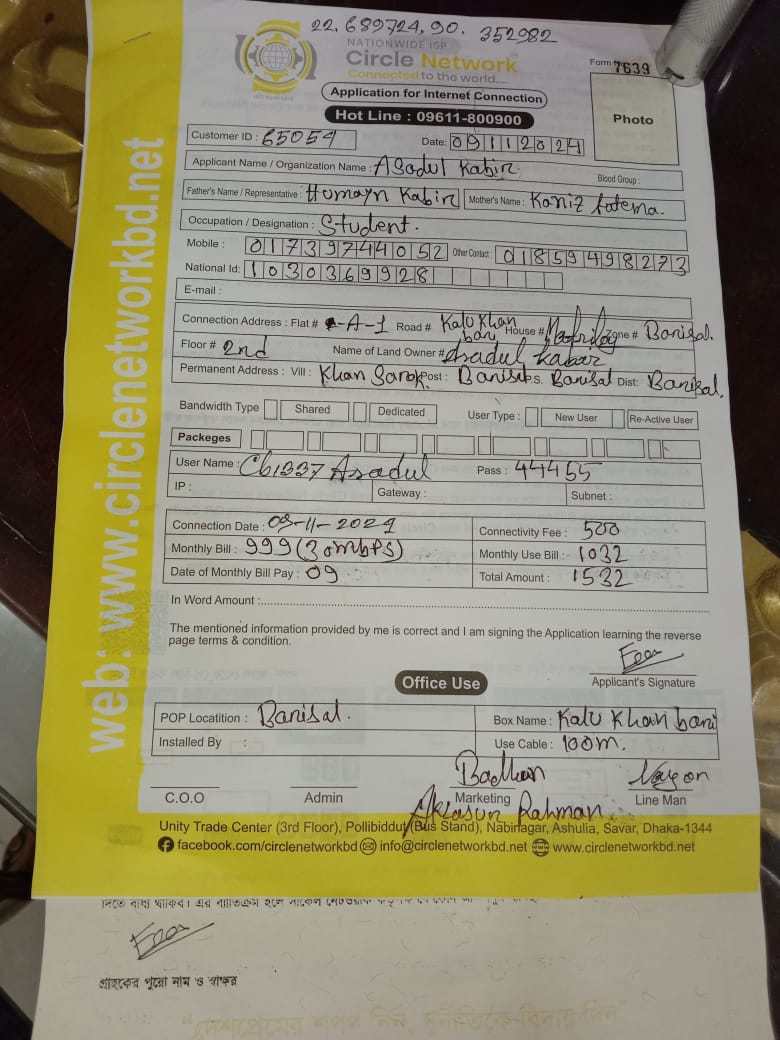 22.689724,90.352982
NATIONWIDE ISP
Circle Network
Connected to the world....
Form 7639
Application for Internet Connection
Hot Line : 09611-800900
Photo
web: www.circlenetworkbd.net
Customer ID : 65054
Date: 09112024
Applicant Name / Organization Name : Asadul Kabir
Blood Group :
Father's Name / Representative : Humayn Kabir
Mother's Name : Kaniz fatema.
Occupation / Designation : Student.
Mobile : 01739744052 Other Contact : 01859498273
National Id: 1030369928
E-mail :
Connection Address : Flat # A-1 Road # Kalu Khan bari House # Zone # Barisal.
Floor # 2nd Name of Land Owner # Asadul Kabir
Permanent Address : Vill : Khan Sarok Post : Barisal P.S. Barisal Dist: Barisal.
Bandwidth Type Shared Dedicated User Type : New User Re-Active User
Packeges
User Name : Cb1337 Asadul Pass : 44455
IP : Gateway : Subnet :
Connection Date : 09-11-2024 Connectivity Fee : 500
Monthly Bill : 999 (30mbPS) Monthly Use Bill :- 1032
Date of Monthly Bill Pay : 09 Total Amount : 1532
In Word Amount :
The mentioned information provided by me is correct and I am signing the Application learning the reverse
page terms & condition.
Applicant's Signature
Office Use
POP Locatition : Barisal. Box Name : Kalu Khan bari
Installed By : Use Cable : 100m.
Badhan Nayon
C.O.O Admin Marketing Line Man
Rahman
Unity Trade Center (3rd Floor), Pollibiddut (Bus Stand), Nabinagar, Ashulia, Savar, Dhaka-1344
facebook.com/circlenetworkbd info@circlenetworkbd.net www.circlenetworkbd.net
গ্রাহকের পুরো নাম ও স্বাক্ষর
"দেশপ্রেমের শপথ নিন, দুর্নীতিকে বিদায় দিন"